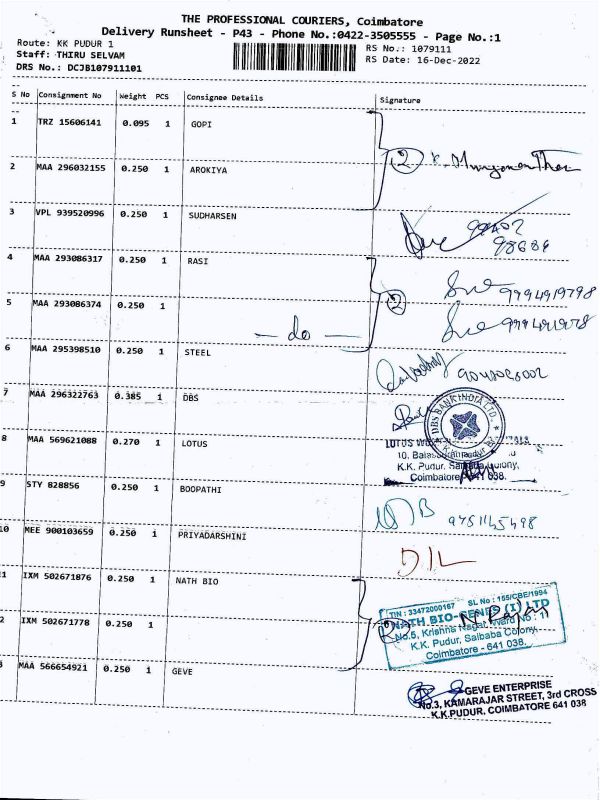 THE PROFESSIONAL COURIERS, Coimbatore
Delivery Runsheet - P43 - Phone No.:0422-3505555 - Page No.:1
Route: KK PUDUR 1
RS No.: 1079111
Staff: THIRU SELVAM
RS Date: 16-Dec-2022
DRS No.: DCJB107911101
S No Consignment No Weight PCS Consignee Details Signature
1 TRZ 15606141 0.095 1 GOPI
2
2 MAA 296032155 0.250 1 AROKIYA
3 VPL 939520996 0.250 1 SUDHARSEN
98686
4 MAA 293086317 0.250 1 RASI
9994919798
2
5 MAA 293086374 0.250 1
— do —
6 MAA 295398510 0.250 1 STEEL
7 MAA 296322763 0.385 1 DBS
DBS BANK INDIA LTD.
8 MAA 569621088 0.270 1 LOTUS
LOTUS
10,
K.K. Pudur, Saibaba Colony,
Coimbatore - 641 038.
9 STY 828856 0.250 1 BOOPATHI
9751145498
10 MEE 900103659 0.250 1 PRIYADARSHINI
1 IXM 502671876 0.250 1 NATH BIO
TIN : 33472000167 SL No : 155/CBE/1994
NATH BIO-GENES (I) LTD
No.5, Krishna Nagar, Ward No : 11
K.K. Pudur, Saibaba Colony,
Coimbatore - 641 038.
2 IXM 502671778 0.250 1
3 MAA 566654921 0.250 1 GEVE
GEVE ENTERPRISE
No.3, KAMARAJAR STREET, 3rd CROSS
K.K.PUDUR, COIMBATORE 641 038